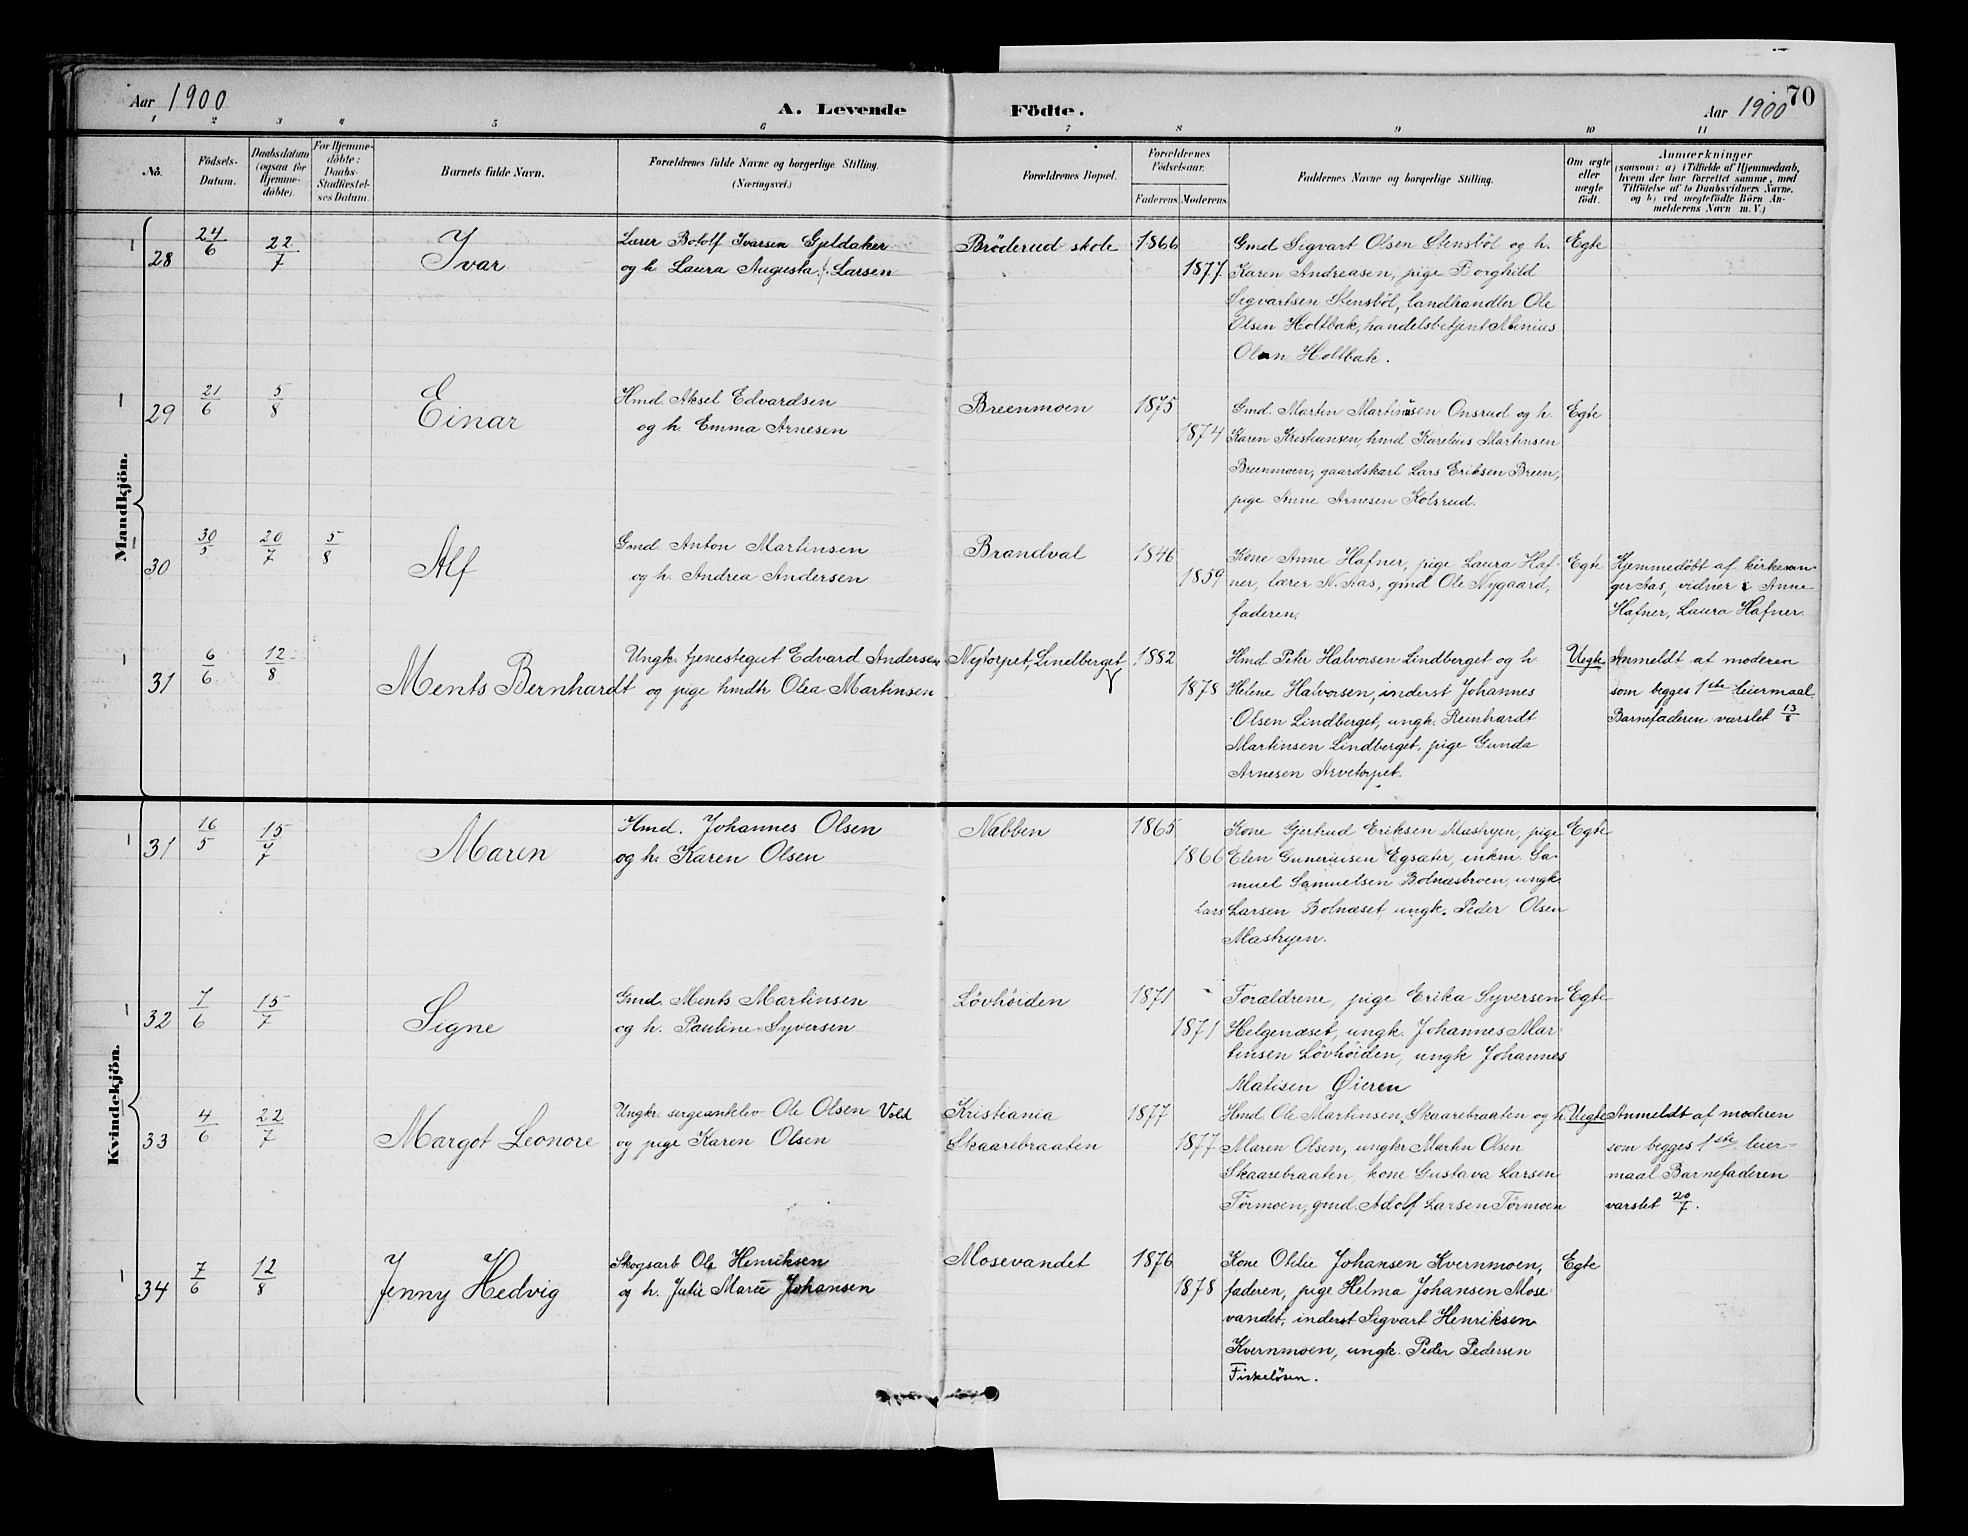 Aar 1900
A. Levende Födte.
Aar 1900
70
1 2 3 4 5 6 7 8 9 10 11
No.
Födsels-Datum.
Daabsdatum (ogsaa for Hjemmedöbte).
For Hjemmedöbte: Daabs-Stadfæstelses Datum.
Barnets fulde Navn.
Forældrenes fulde Navne og borgerlige Stilling. (Næringsvei.)
Forældrenes Bopæl.
Forældrenes Födselsaar.
Faderens Moderens
Faddernes Navne og borgerlige Stilling.
Om ægte eller uægte födt.
Anmærkninger
(saasom: a) i Tilfælde af Hjemmedaab, hvem der har forrettet samme, med Tilföielse af to Daabsvidners Navne, og b) ved uægtefödte Börn Anmelderens Navn m. V.)
Mandkjön.
28 24/6 22/7 Ivar
Lærer Botolf Ivarsen Gjeldaker
og h. Laura Augusta f. Larsen
Bröderud skole 1866
1877
Gmd Sigvart Olsen Stensböl og h.
Karen Andreasen, pige Borghild
Sigvartsen Stensböl, landhandler Ole
Olsen Holtbak, handelsbetjent Albinius
Olsen Holtbak.
Egte
29 21/6 5/8 Einar
Hmd. Aksel Edvardsen
og h. Emma Arnesen
Breenmoen 1875
1874
Gmd. Martin Martinusen Onsrud og h.
Karen Kristiansen, hmd Karelius Martinsen
Breenmoen, gaardskarl Lars Eriksen Breen,
pige Anne Arnesen Kolsrud.
Egte
30 30/5 20/7 5/8 Alf
Gmd. Anton Martinsen
og h. Andrea Andersen
Brandval 1846
1859
Kone Anne Hafner, pige Laura Haf-
ner, lærer N. Aas, gmd Ole Nygaard,
faderen.
Egte
Hjemmedöbt af kirkesan-
ger Aas, vidner: Anne
Hafner, Laura Hafner.
31 6/6 12/8 Ments Bernhardt
Ungk. tjenestegut Edvard Andersen
og pige hmdtr Olea Martinsen
Nytorpet, Lindberget 1882
1878
Hmd Petr Halvorsen Lindberget og h
Helene Halvorsen, inderst Johannes
Olsen Lindberget, ungk. Reinhardt
Martinsen Lindberget, pige Gunda
Arnesen Arvetorpet.
Uegte
Anmeldt af moderen
som begges 1ste leiermaal.
Barnefaderen varslet 13/8
Kvindekjön.
31 16/5 15/7 Maren
Hmd. Johannes Olsen
og h. Karen Olsen
Nabben 1865
1866
Kone Gjertrud Eriksen Mastryen, pige
Elen Guneriusen Egsæter, inkm. Sa-
muel Samuelsen Bolnæsbroen, ungk.
Lars Larsen Bolnæset, ungk. Peder Olsen
Mastryen.
Egte
32 7/6 15/7 Signe
Gmd. Ments Martinsen
og h. Pauline Syversen
Lövhöiden 1871
1871
Forældrene, pige Erika Syversen
Helgenæset, ungk. Johannes Mar-
tinsen Lövhöiden, ungk Johannes
Matisen Øieren
Egte
33 4/6 22/7 Margot Leonore
Ungkr. sergeantelev Ole Olsen Vold
og pige Karen Olsen
Kristiania 1877
Skaarebraaten 1877
Hmd. Ole Martinsen Skaarebraaten og h
Maren Olsen, ungkr Martin Olsen
Skaarebraaten, kone Gustava Larsen
Törmoen, gmd. Adolf Larsen Törmoen
Uegte
Anmeldt af moderen
som begges 1ste leier-
maal Barnefaderen
varslet 20/7.
34 7/6 12/8 Jenny Hedvig
Skogsarb Ole Henriksen
og h. Julie Marie Johansen
Mosevandet 1876
1878
Kone Otilie Johansen Kvernmoen,
faderen, pige Helma Johansen Mose-
vandet, inderst Sigvart Henriksen
Kvernmoen, ungk. Peder Pedersen
Fiskelösen.
Egte